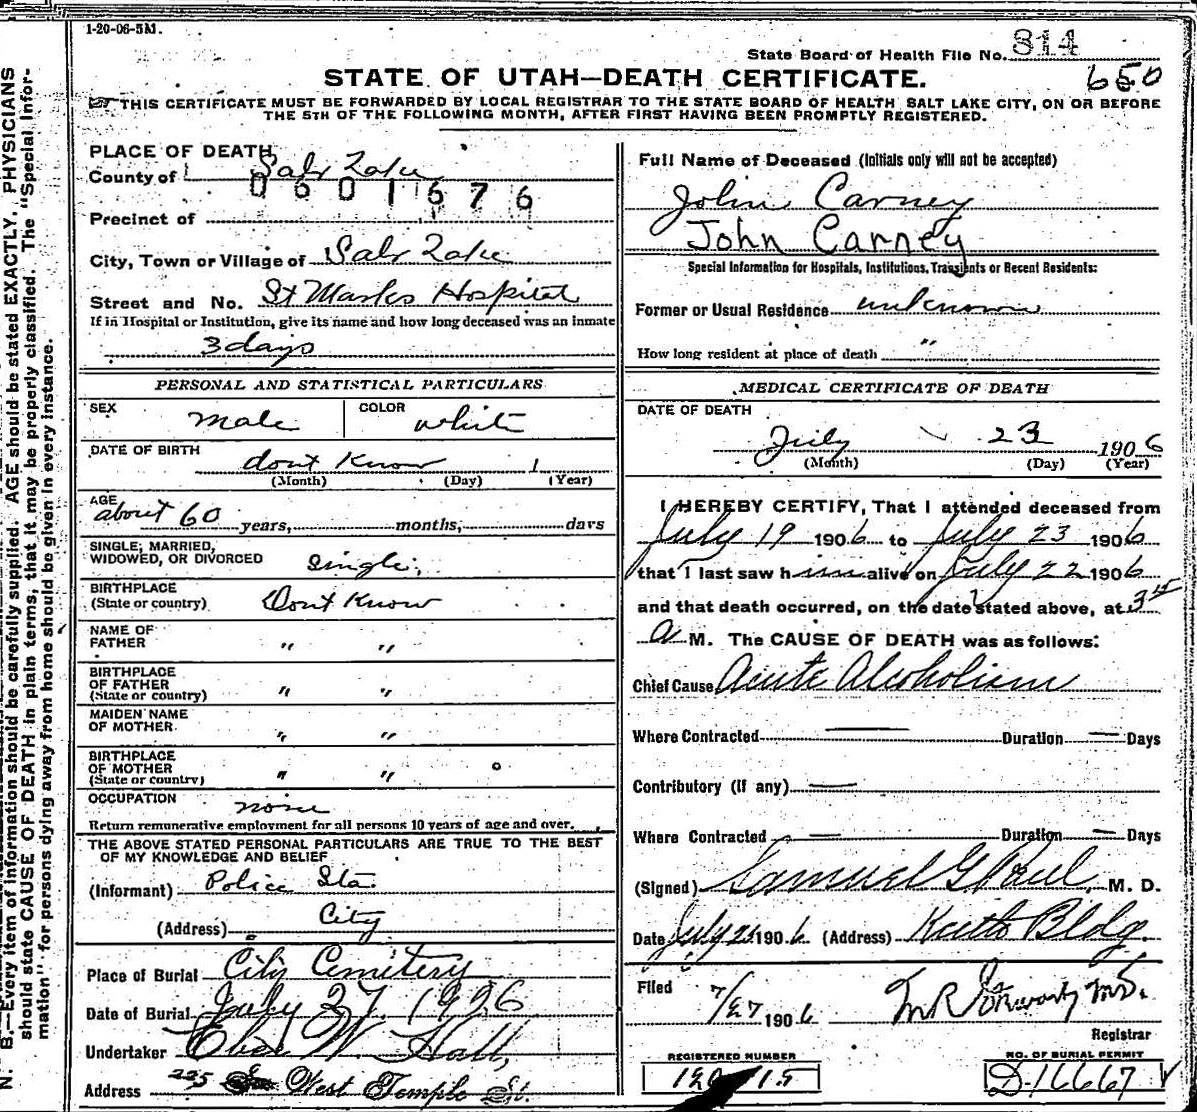 1-20-06-5M.
State Board of Health File No. 814
STATE OF UTAH—DEATH CERTIFICATE.
650
THIS CERTIFICATE MUST BE FORWARDED BY LOCAL REGISTRAR TO THE STATE BOARD OF HEALTH SALT LAKE CITY, ON OR BEFORE
THE 5TH OF THE FOLLOWING MONTH, AFTER FIRST HAVING BEEN PROMPTLY REGISTERED.
PLACE OF DEATH,
County of Salt Lake
0601676
Precinct of
City, Town or Village of Salt Lake
Street and No. St Marks Hospital
If in Hospital or Institution, give its name and how long deceased was an inmate
3 days
PERSONAL AND STATISTICAL PARTICULARS
SEX male COLOR white
DATE OF BIRTH dont Know 1
(Month) (Day) (Year)
AGE
about 60 years, months, days
SINGLE, MARRIED,
WIDOWED, OR DIVORCED single
BIRTHPLACE
(State or country) Dont Know
NAME OF
FATHER " "
BIRTHPLACE
OF FATHER
(State or country) " "
MAIDEN NAME
OF MOTHER " "
BIRTHPLACE
OF MOTHER
(State or country) " "
OCCUPATION none
Return remunerative employment for all persons 10 years of age and over.
THE ABOVE STATED PERSONAL PARTICULARS ARE TRUE TO THE BEST
OF MY KNOWLEDGE AND BELIEF
(Informant) Police Sta.
(Address) City
Place of Burial City Cemetery
Date of Burial July 27, 1906
Undertaker W. Hall,
Address 225 West Temple St.
Full Name of Deceased (Initials only will not be accepted)
John Carney
John Carney
Special Information for Hospitals, Institutions, Transients or Recent Residents:
Former or Usual Residence unknown
How long resident at place of death "
MEDICAL CERTIFICATE OF DEATH
DATE OF DEATH
July 23 1906
(Month) (Day) (Year)
I HEREBY CERTIFY, That I attended deceased from
July 19 1906 to July 23 1906
that I last saw him alive on July 22 1906
and that death occurred, on the date stated above, at 3
a M. The CAUSE OF DEATH was as follows:
Chief Cause Acute Alcoholism
Where Contracted — Duration — Days
Contributory (if any) —
Where Contracted — Duration — Days
(Signed) Samuel G Paul, M. D.
Date July 1906 (Address) Keith Bldg.
Filed 7/27 1906
Registrar
REGISTERED NUMBER
NO. OF BURIAL PERMIT
D-16667
N. B.—Every item of information should be carefully supplied. AGE should be stated EXACTLY. PHYSICIANS
should state CAUSE OF DEATH in plain terms, that it may be properly classified. The "Special Infor-
mation" for persons dying away from home should be given in every instance.